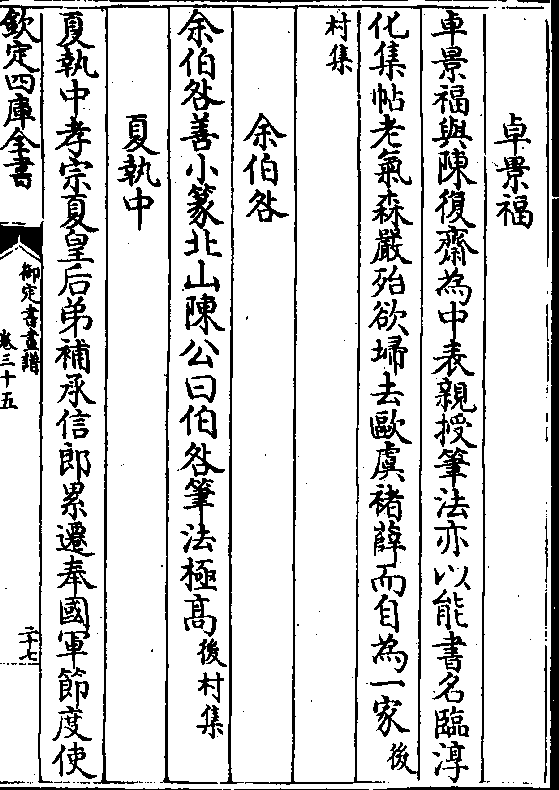 卓景福
卓景福與陳復齋為中表親授筆法亦以能書名臨淳
化集帖老氣森嚴殆欲埽去歐虞褚薛而自為一家後
村集
余伯咎
余伯咎善小篆北山陳公曰伯咎筆法極高後村集
夏執中
夏執中孝宗夏皇后弟補承信郎累遷奉國軍節度使
欽定四庫全書
御定書畫譜
卷三十五
二十七